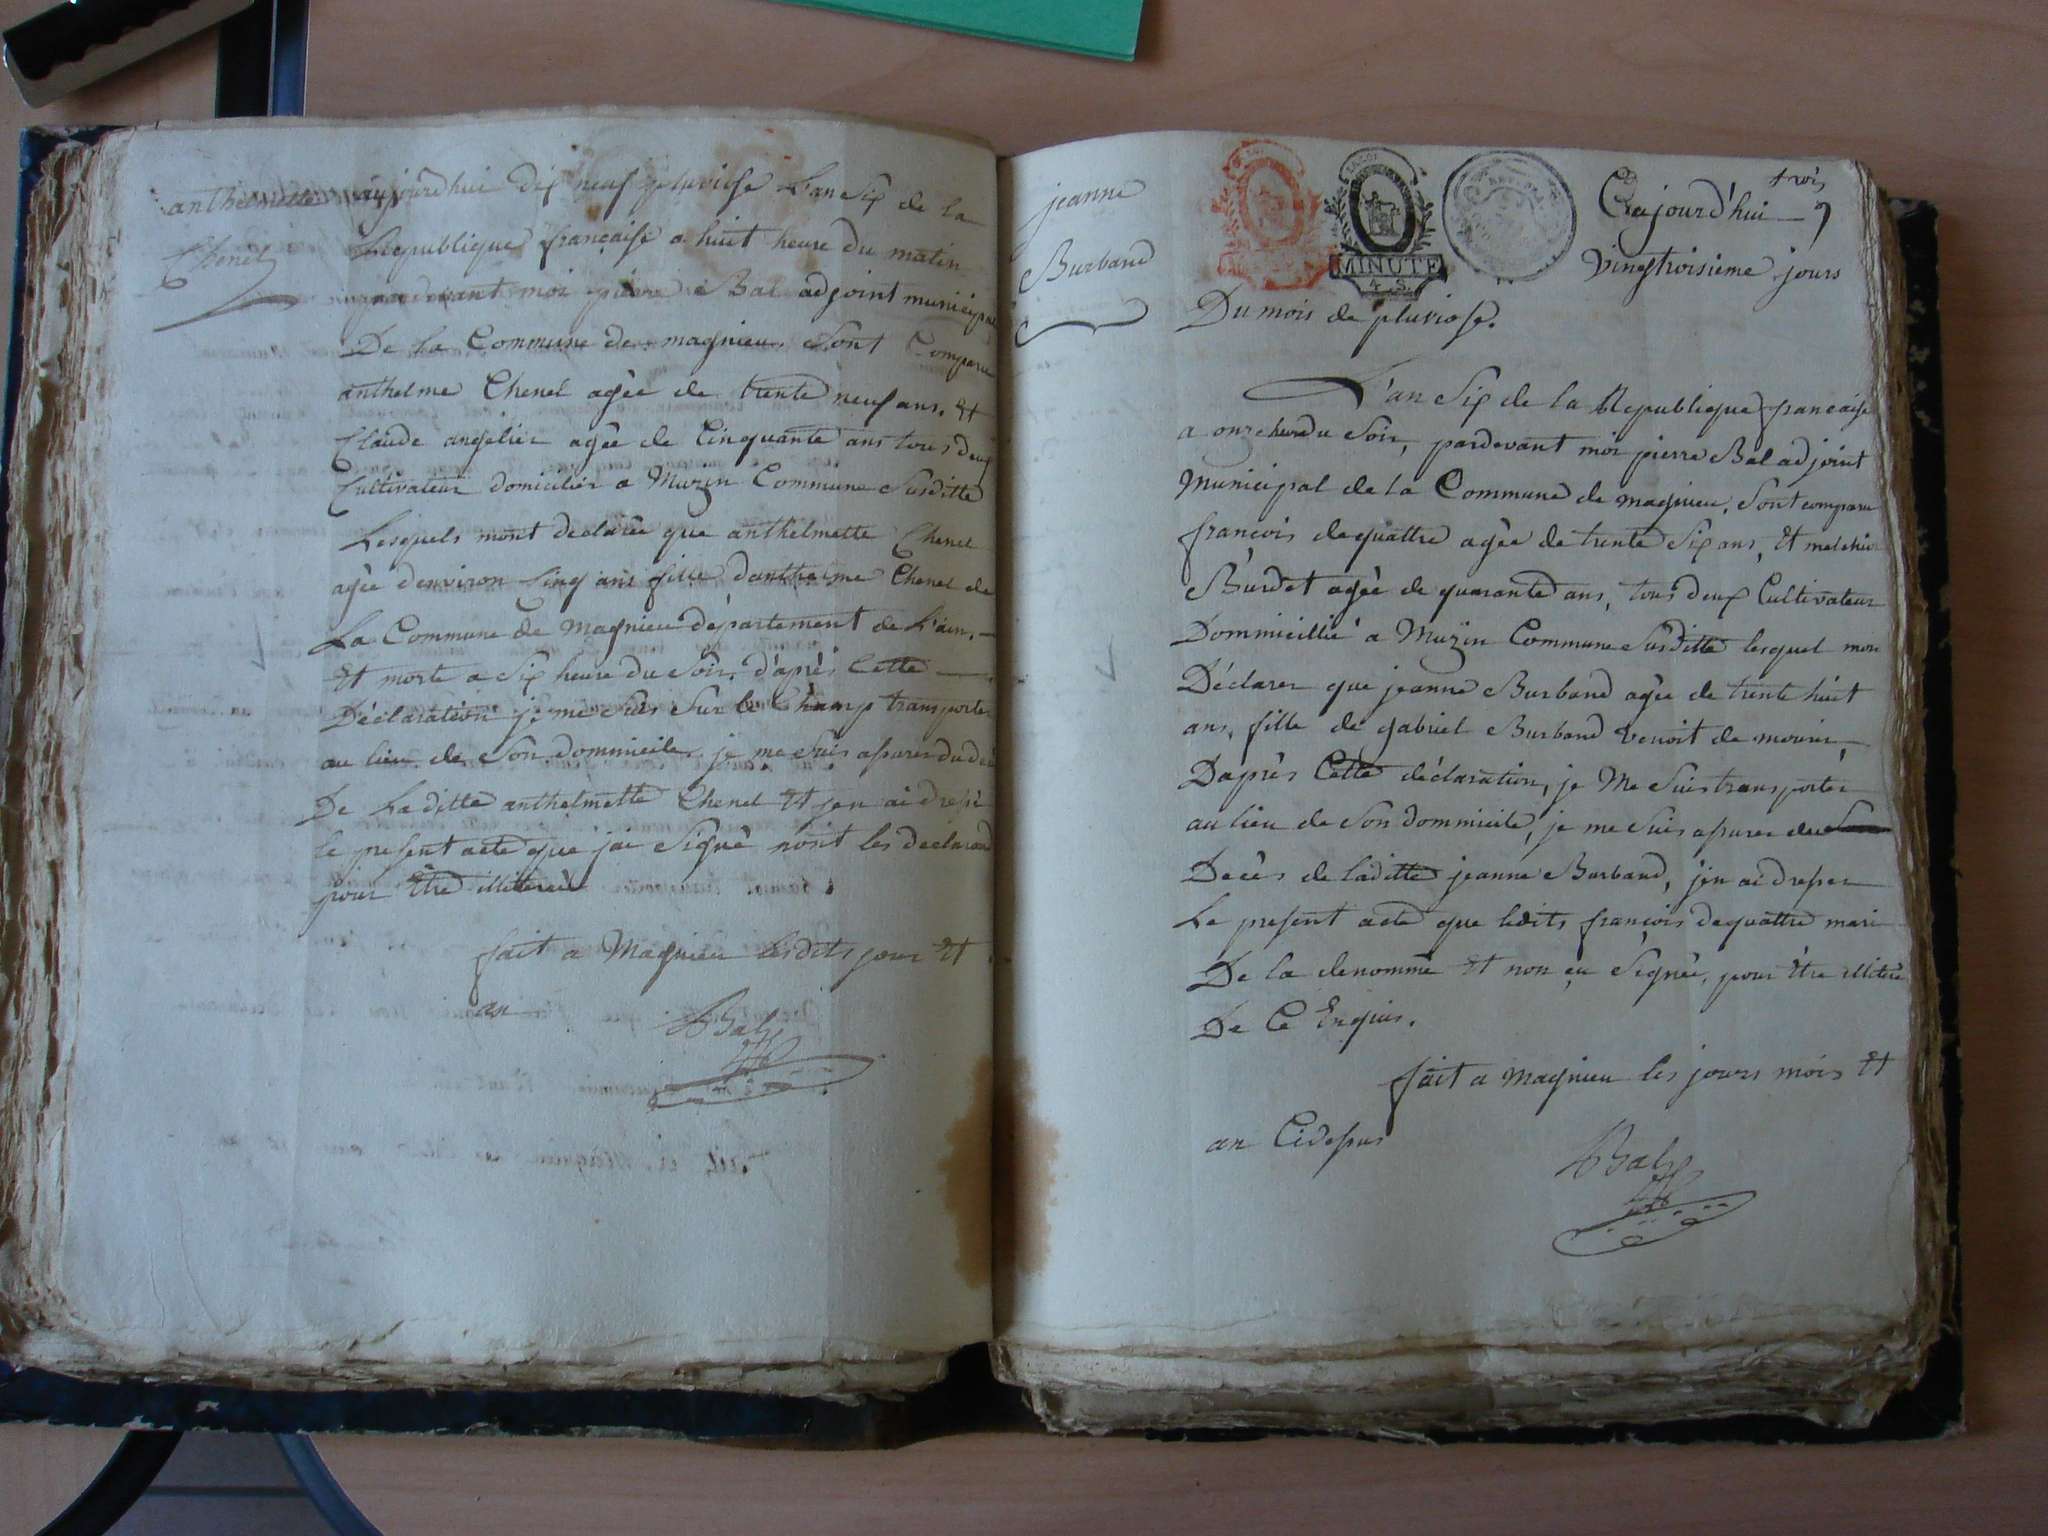 anthelmette
Chenel
aujourdhui dix neuf pluviose L'an Six de la
Republique française a huit heure du matin
pardevant moi pierre Bal adjoint municipal
De la Commune de magnieu Sont Comparu
anthelme Chenel agèe de trente neuf ans. Et
Claude angelier agèe de Cinquante ans tous deux
Cultivateur domicilier a Muzin Commune Susditte
Lesquels mont declarèe que anthelmette Chenel
agèe denviron Cinq ans fille danthelme Chenel de
La Commune de Magnieu département de L'ain.
Et morte a Six heure du Soir. d'après Cette
Déclaration je me Suis Sur le Champ transporter
au lieu de Son dommicile je me Suis apurer du
De La ditte anthelmette Chenel Et jen ai dresse
le present acte que jai Signè nont les declarand
pour Etre illiterée
fait a Magnieu lesdits jour Et
an
Bal
jeanne
Burband
MINUTE
4. S.
trois
Cejourd'hui
Vingtroisieme jours
Du mois de pluviose.
L'an Six de la Republique francaise
a onze heure du Soir, pardevant moi pierre Bal adjoint
Municipal de la Commune de magnieu, Sont comparu
françois dequattre agèe de trente Six ans, Et melchior
Burdet agèe de quarante ans, tous deux Cultivateur
Dommicillié a Muzin Commune Susditte lesquel mon
Déclarer que jeanne Burband agèe de trente huit
ans, fille de gabriel Burband venoit de mourir,
Daprès Cette déclaration, je Me Suis transporter
au lieu de Son dommicile, je me Suis apurer du
Decès de laditte jeanne Burband, j'en ai dresser
Le present acte que ledits françois dequattre mari
De la denommè Et non eu Signèe, pour être illitère
De Ce Enquis.
fait a Magnieu les jours mois Et
an Cidessus
Bal